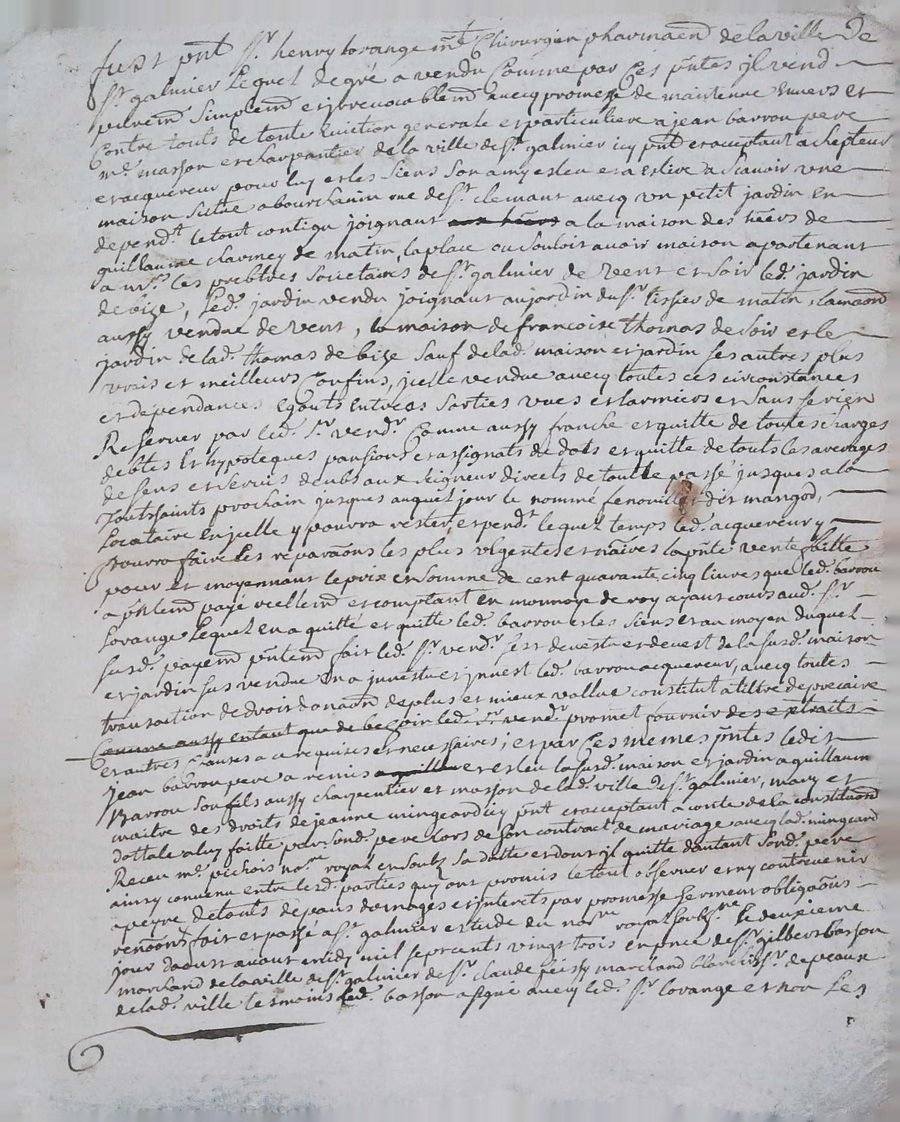 fust pnt Sr henry lorange mtre Chirurgien pharmacien de la ville De
St galmier Lequel de gré a vendu Comme par Ces pntes jl vend
purem̃ Simplem̃ et jrrevocablem̃ avecq promesse de maintenue Envers et
Contre touts de toute Eviction generale et particuliere a jean barrou pere
me masson et charpantier de la ville de St galmier icy pnt et acceptant achepteur
et acquereur pour luy et les Siens Son amy esleu et a eslire a Scavoir une
maison Scitue a bourchanin rue de St clemant avecq un petit jardin En
depend.t le tout contigu joignant aux hoirs a la maison des hoirs de
guillaume charmey de matin, la place ou Souloit avoir maison apartenant
a mrs les prebtres Societaires de St galmier de vent et Soir led. jardin
de bize, Led. jardin vendu joignant au jardin du Sr tissier de matin, la maison
aussy vendue de vent, la maison de francoise thomas de Soir et le
jardin de lad. thomas de bize Sauf de lad. maison et jardin Ses autres plus
vrais et meilleurs Confins, jcelle vendue avecq toutes Ces circonstances
et dependances Egouts Entrees Sorties vues et larmiers et Sans Se rien
Reserver par led. Sr vendr Comme aussy franche et quitte de toutes charges
debtes Et hypoteques pansions et assignats de dots et quitte de touts les arerages
de Sens et Servis deubs aux Seigneur directs de tout le passé jusques a la
Toutssaints prochain jusques auquel jour le nommé fenouillet dit mangod,
Locataire En jcelle y pourra rester, et pend.t lequel temps led. acquereur y
pourra faire Les reparaõns les plus Urgentes et nãires la pnte vente faitte
pour Et moyennant le prix et Somme de cent quarante cinq livres que led. barrou
a pntem̃ payé reellem̃ et comptant En monnoye de roy ayant cours aud. Sr
Lorange Lequel En a quitté et quitte led. barrou et les Siens et au moyen duquel
Susd. payem̃ pntem̃ fait led. Sr vendr S'est devestu et devest de la Susd. maison
et jardin Sus vendue En a jnvestu et jnvest led. barrou acquereur, avecq toutes
translation de droit d'anaõn de plus et mieux vallue constitut a tiltre de precaire
Comme aussy entant que de besoin led. Sr vendr promet fournir des extraits
et autres Causes a ce requises et necessaires; et par Ces memes pntes ledit
Jean barrou pere a remis a guilla et esleu la Susd. maison et jardin a guillaum
Barrou Son fils aussy charpentier et masson de lad. ville de St galmier, mary et
maitre des droits de jeanne mingeard icy pnt et acceptant a conte de la constituõn
dottale a luy faitte par Sond. pere Lors de Son contract de mariage avecq lad. mingeard
Receu me pichois nore royal et Soubs Sa datte et dont jl quitte d'autant Sond. pere
ainsy convenu entre lesd. parties quy ont promis le tout observer et n'y contrevenir
a peyne de touts depans domages et jnterets par promesse Serment obligaõns
renonõns fait et passé a St galmier estude du nore royal Soubsne le deuxieme
jour d'aoust avant midy mil Sept cents vingt trois en pnce de Sr gilbert basson
marchand de la ville de St galmier de Sr claude peissy marchand blanchissr de peaux
de lad. ville tesmoins Led. basson a Signé avecq led. Sr lorange et non Les